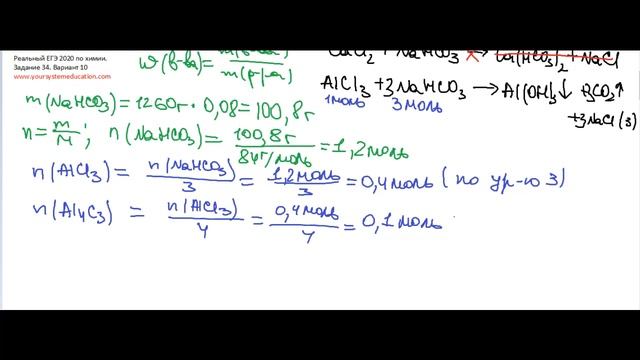 Реальный ЕГЭ 2020 по химии.
Задание 34. Вариант 10
www.yoursystemeducation.com
ω(в-ва)= m(в-ва)/m(р-ра)
CaCl₂ + NaHCO₃ → Ca(HCO₃)₂ + NaCl
AlCl₃ + 3NaHCO₃ → Al(OH)₃↓ + 3CO₂↑
+3NaCl (3)
1моль 3 моль
m(NaHCO₃)=1260г · 0,08=100,8г
n=m/M; n(NaHCO₃)= 100,8г/84г/моль =1,2моль
n(AlCl₃)= n(NaHCO₃)/3 = 1,2моль/3 =0,4моль (по ур-ю 3)
n(Al₄C₃) = n(AlCl₃)/4 = 0,4моль/4 = 0,1моль